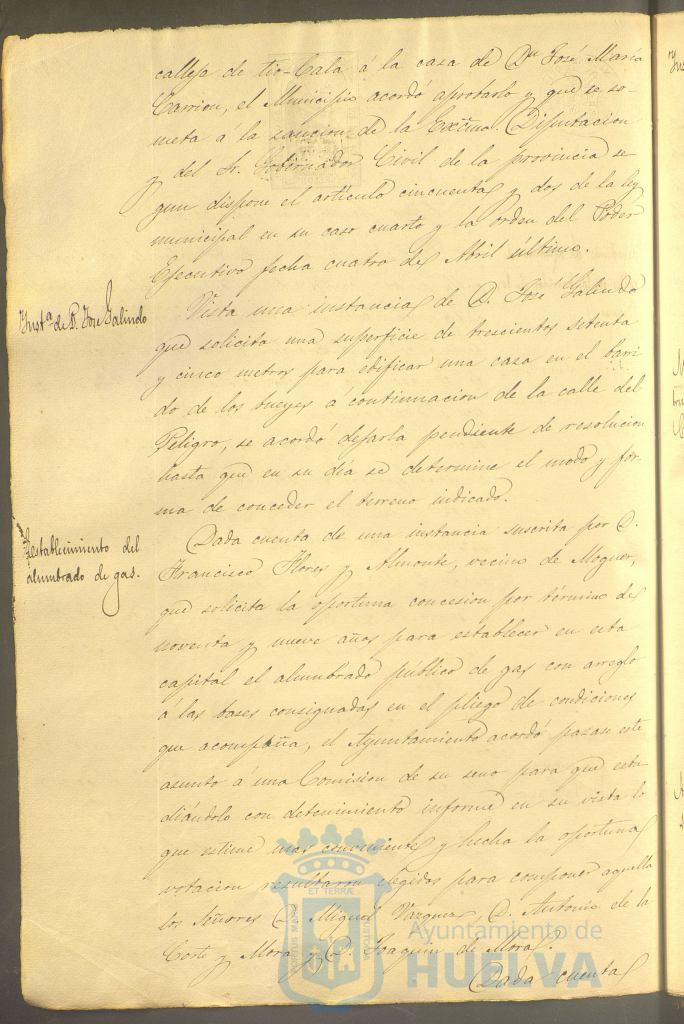 calleja de tio-Cala á la casa de Dn José María
Carrion, el Municipio acordó aprobarlo y que se so-
meta á la sancion de la Excma. Diputacion
y del Sr. Gobernador Civil de la provincia se
gun dispone el artículo cincuenta y dos de la ley
municipal en su caso cuarto y la orden del Poder
Ejecutivo fecha cuatro de Abril último.
Insta. de D. Jose Galindo
Vista una instancia de D. José Galindo
que solicita una superficie de trescientos setenta
y cinco metros para edificar una casa en el barri
do de los bueyes á continuacion de la calle del
Peligro, se acordó dejarla pendiente de resolucion
hasta que en su dia se determine el modo y for-
ma de conceder el terreno indicado.
Establecimiento del
alumbrado de gas.
Dada cuenta de una instancia suscrita por D.
Francisco Flores y Almonte, vecino de Moguer,
que solicita la oportuna concesion por término de
noventa y nueve años para establecer en esta
capital el alumbrado público de gas con arreglo
á las bases consignadas en el pliego de condiciones
que acompaña, el Ayuntamiento acordó pasase este
asunto á una Comision de su seno para que estu
diándolo con detenimiento informe en su vista lo
que estime mas conveniente y hecha la oportuna
votacion resultaron elegidos para componer aquella
los Señores D. Miguel Vazquez, D. Antonio de la
Corte y Mora y D. Joaquin de Mora.
Dada cuenta
ET TERRÆ
PORTUS MARIS
CUSTODIA
Ayuntamiento de
HUELVA